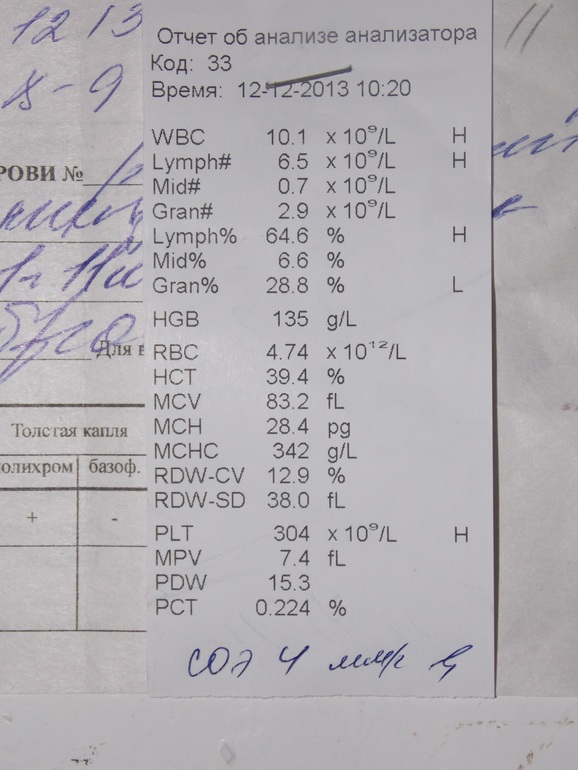 12 13
Отчет об анализе анализатора
Код: 33
Время: 12-12-2013 10:20
WBC 10.1 x 10⁹/L H
Lymph# 6.5 x 10⁹/L H
Mid# 0.7 x 10⁹/L
Gran# 2.9 x 10⁹/L
Lymph% 64.6 % H
Mid% 6.6 %
Gran% 28.8 % L
HGB 135 g/L
RBC 4.74 x 10¹²/L
HCT 39.4 %
MCV 83.2 fL
MCH 28.4 pg
MCHC 342 g/L
RDW-CV 12.9 %
RDW-SD 38.0 fL
PLT 304 x 10⁹/L H
MPV 7.4 fL
PDW 15.3
PCT 0.224 %
СОЭ 4 мм/ч
РОВИ №
Для в
Толстая капля
олихром базоф.
+ -